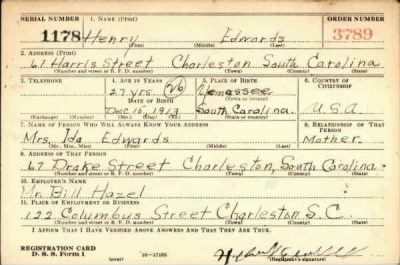 SERIAL NUMBER 1. NAME (Print) ORDER NUMBER
1178 Henry Edwards 3789
(First) (Middle) (Last)
2. ADDRESS (Print)
61 Harris Street Charleston South Carolina
(Number and street or R. F. D. number) (Town) (County) (State)
3. TELEPHONE 4. AGE IN YEARS 5. PLACE OF BIRTH 6. COUNTRY OF CITIZENSHIP
27 yrs (26) Yemassee
DATE OF BIRTH (Town or county)
Dec 15, 1913 South Carolina. U.S.A.
(Exchange) (Number) (Mo.) (Day) (Yr.) (State or country)
7. NAME OF PERSON WHO WILL ALWAYS KNOW YOUR ADDRESS 8. RELATIONSHIP OF THAT PERSON
Mrs. Ida Edwards Mother.
(Mr., Mrs., Miss) (First) (Middle) (Last)
9. ADDRESS OF THAT PERSON
67 Drake Street Charleston, South Carolina
(Number and street or R. F. D. number) (Town) (County) (State)
10. EMPLOYER'S NAME
Mr. Bill Hazel
11. PLACE OF EMPLOYMENT OR BUSINESS
122 Columbus Street Charleston S.C.
(Number and street or R. F. D. number) (Town) (County) (State)
I AFFIRM THAT I HAVE VERIFIED ABOVE ANSWERS AND THAT THEY ARE TRUE.
REGISTRATION CARD
D. S. S. Form 1 (over) 16-17105 (Registrant's signature)